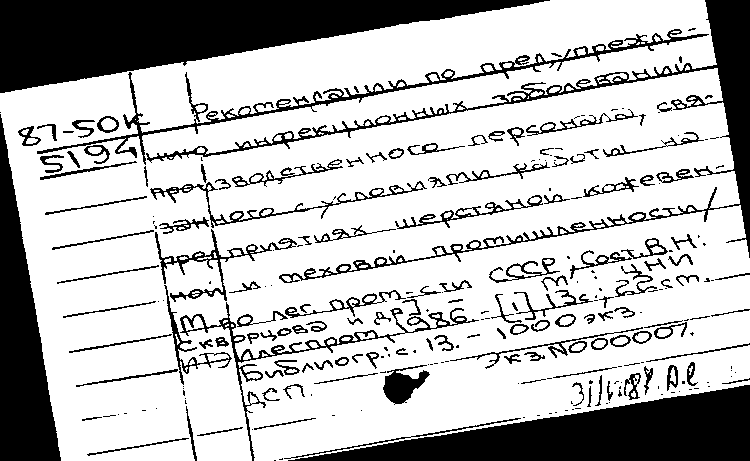 87-50к
5194
Рекомендации по предупрежде-
нию инфекционных заболеваний
производственного персонала, свя-
занного с условиями работы на
предприятиях шерстяной кожевен-
ной и меховой промышленности /
М-во лег. пром-сти СССР; Сост. В.Н.
Скворцова и др]. - М.: ЦНИ
ИТЭИлегпром, 1986. - [1], 13с.; 22см.
Библиогр.: с. 13. - 1000 экз.
ДСП. Экз. N000001.